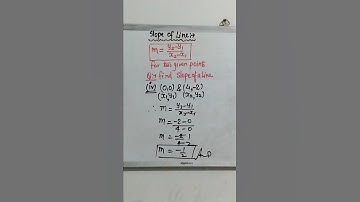 Slope of Line:-
m = y₂-y₁/x₂-x₁
For two given points
Q:- Find Slope of a line
(iv) (0,0) & (4,-2)
(x₁,y₁) (x₂,y₂)
∴ m = y₂-y₁/x₂-x₁
m = -2-0/4-0
m = -2 1/4 2
m = -1/2